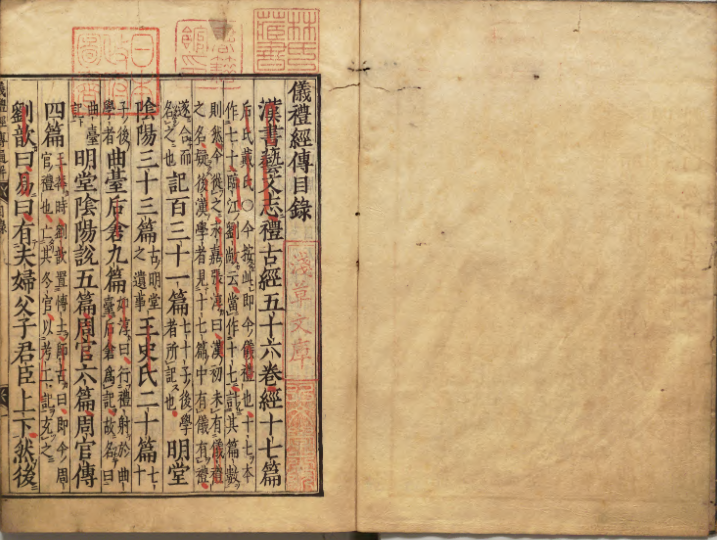 儀禮經傳目錄
漢書藝文志禮古經五十六卷經十七篇
后氏戴氏〇今按此即今儀禮也十七本
作七十臨江劉敞云當作十七計其篇數
則然今從之永嘉張淳曰漢初未有儀禮
之名疑後漢學者見十七篇中有儀有禮
遂合而
名之也
記百三十一篇
七十子後學
者所記也
明堂
陰陽三十三篇
古明堂
之遺事
王史氏二十篇
七十
子後
學者
曲臺后倉九篇
如淳曰行禮射於曲
臺后倉為記故名曰
曲臺
記
明堂陰陽說五篇周官六篇周官傳
四篇
王莽時劉歆置博士師古曰即今周
官禮也亡其冬官以考工記充之
劉歆曰易曰有夫婦父子君臣上下然後
林氏
藏書
日本
政府
圖書
淺草文庫